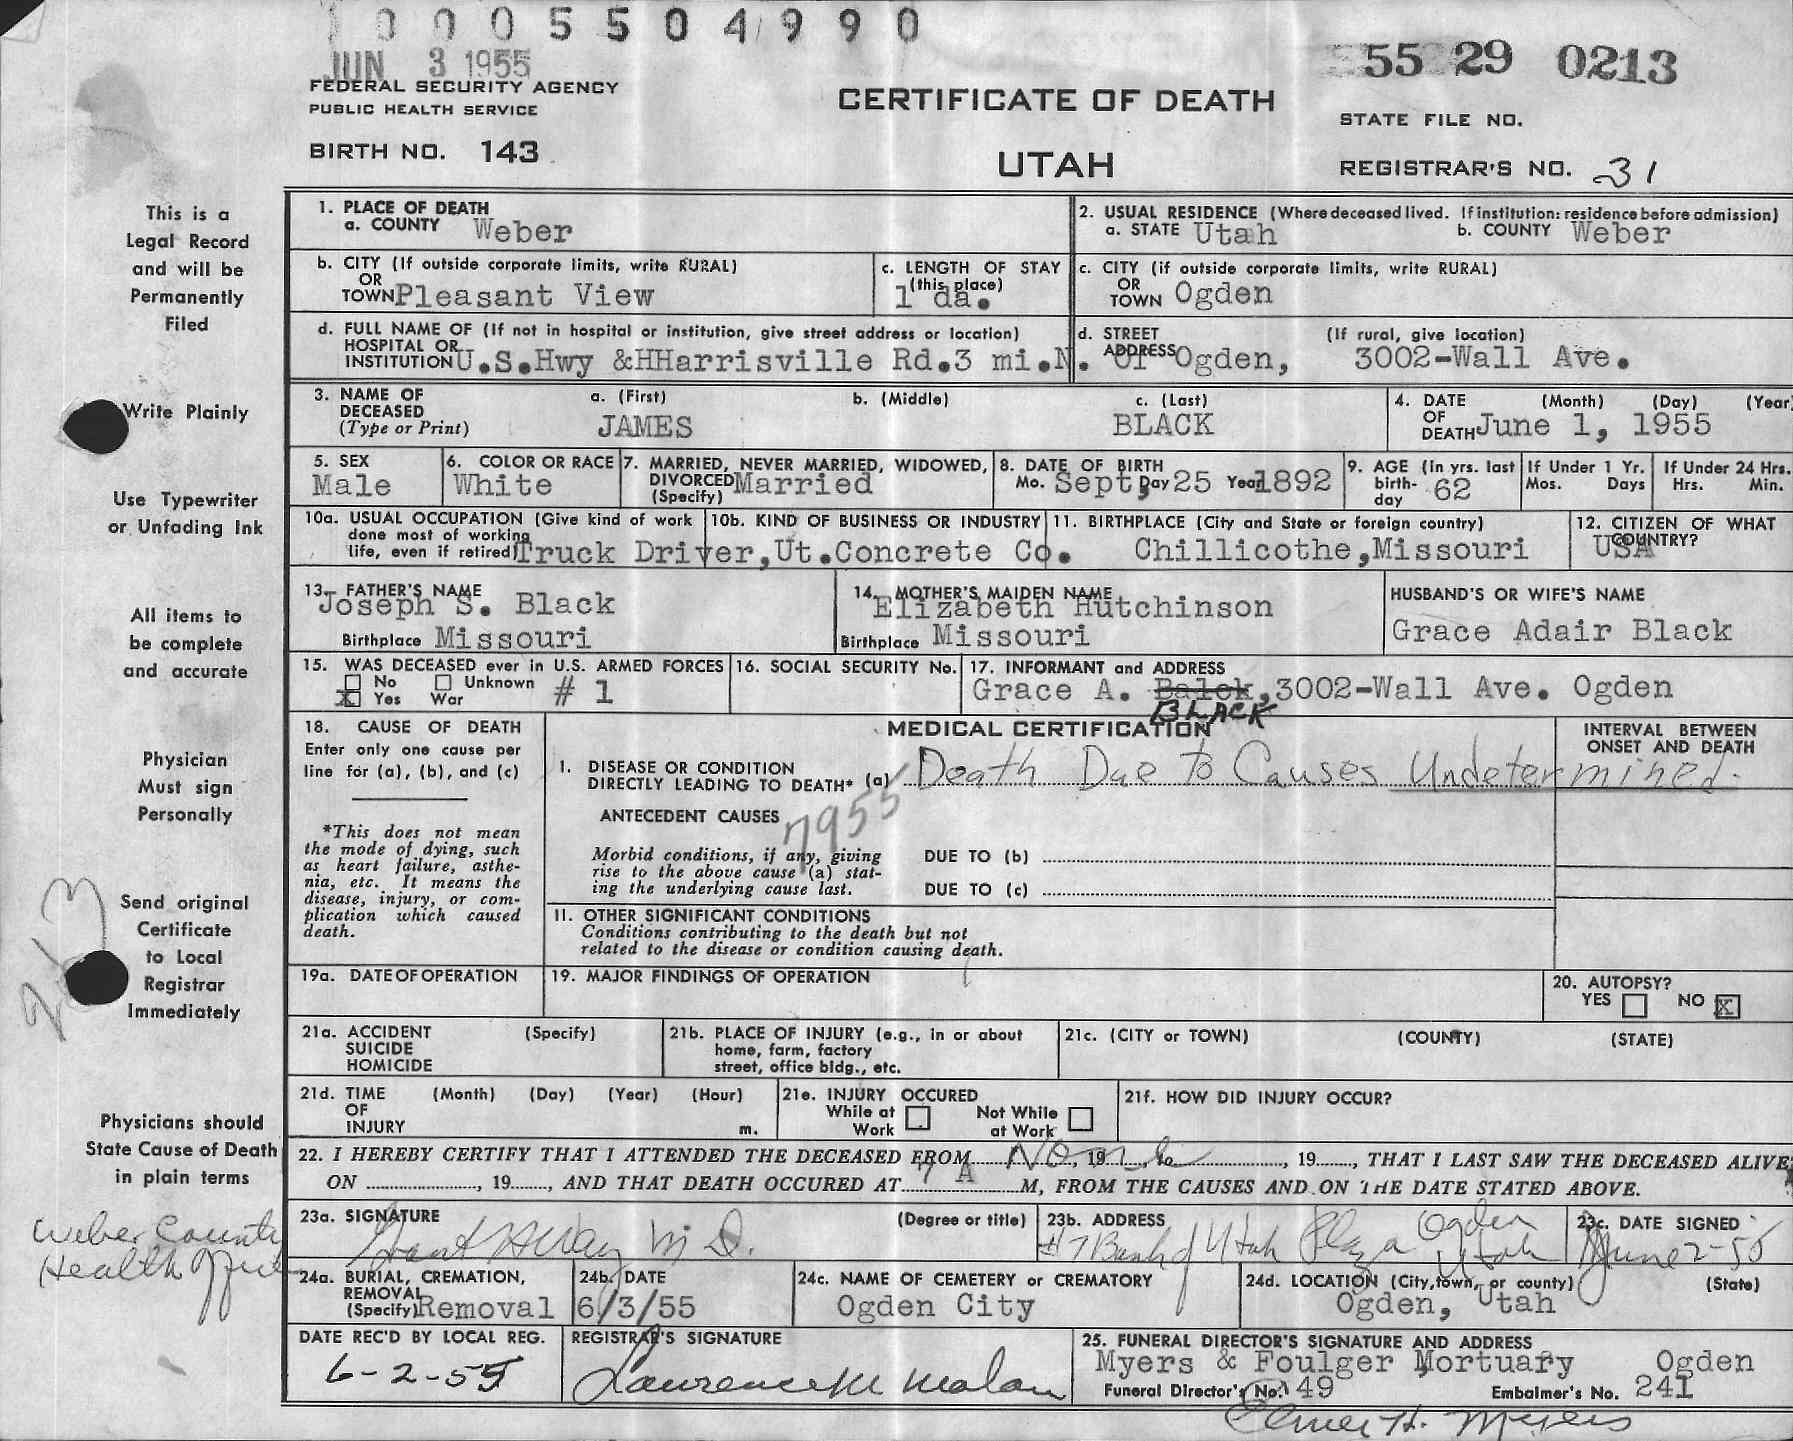 1 0 0 0 5 5 0 4 9 9 0
JUN 3 1955
55 29 0213
FEDERAL SECURITY AGENCY
PUBLIC HEALTH SERVICE
CERTIFICATE OF DEATH
STATE FILE NO.
BIRTH NO. 143
UTAH
REGISTRAR'S NO. 31
This is a
Legal Record
and will be
Permanently
Filed
Write Plainly
Use Typewriter
or Unfading Ink
All items to
be complete
and accurate
Physician
Must sign
Personally
Send original
Certificate
to Local
Registrar
Immediately
Physicians should
State Cause of Death
in plain terms
Weber County
Health
1. PLACE OF DEATH
a. COUNTY Weber
2. USUAL RESIDENCE (Where deceased lived. If institution: residence before admission)
a. STATE Utah b. COUNTY Weber
b. CITY (If outside corporate limits, write RURAL)
OR
TOWN Pleasant View
c. LENGTH OF STAY
(this place)
1 da.
c. CITY (if outside corporate limits, write RURAL)
OR
TOWN Ogden
d. FULL NAME OF (If not in hospital or institution, give street address or location)
HOSPITAL OR
INSTITUTION U.S.Hwy &HHarrisville Rd.3 mi.N. of Ogden,
d. STREET (If rural, give location)
ADDRESS 3002-Wall Ave.
3. NAME OF
DECEASED
(Type or Print)
a. (First) b. (Middle) c. (Last)
JAMES BLACK
4. DATE (Month) (Day) (Year
OF
DEATH June 1, 1955
5. SEX
Male
6. COLOR OR RACE
White
7. MARRIED, NEVER MARRIED, WIDOWED,
DIVORCED Married
(Specify)
8. DATE OF BIRTH
Mo. Sept, Day 25 Year 1892
9. AGE (In yrs. last
birth-
day 62
If Under 1 Yr.
Mos. Days
If Under 24 Hrs.
Hrs. Min.
10a. USUAL OCCUPATION (Give kind of work
done most of working
life, even if retired) Truck Driver,
10b. KIND OF BUSINESS OR INDUSTRY
Ut.Concrete Co.
11. BIRTHPLACE (City and State or foreign country)
Chillicothe,Missouri
12. CITIZEN OF WHAT
COUNTRY?
USA
13. FATHER'S NAME
Joseph S. Black
Birthplace Missouri
14. MOTHER'S MAIDEN NAME
Elizabeth Hutchinson
Birthplace Missouri
HUSBAND'S OR WIFE'S NAME
Grace Adair Black
15. WAS DECEASED ever in U.S. ARMED FORCES
No Unknown
X Yes War # 1
16. SOCIAL SECURITY No.
17. INFORMANT and ADDRESS
Grace A. Balck,3002-Wall Ave. Ogden
BLACK
18. CAUSE OF DEATH
Enter only one cause per
line for (a), (b), and (c)
*This does not mean
the mode of dying, such
as heart failure, asthe-
nia, etc. It means the
disease, injury, or com-
plication which caused
death.
MEDICAL CERTIFICATION
INTERVAL BETWEEN
ONSET AND DEATH
I. DISEASE OR CONDITION
DIRECTLY LEADING TO DEATH* (a) Death Due To Causes Undetermined.
ANTECEDENT CAUSES
7955
Morbid conditions, if any, giving
rise to the above cause (a) stat-
ing the underlying cause last.
DUE TO (b)
DUE TO (c)
II. OTHER SIGNIFICANT CONDITIONS
Conditions contributing to the death but not
related to the disease or condition causing death.
19a. DATE OF OPERATION
19. MAJOR FINDINGS OF OPERATION
20. AUTOPSY?
YES NO X
21a. ACCIDENT (Specify)
SUICIDE
HOMICIDE
21b. PLACE OF INJURY (e.g., in or about
home, farm, factory
street, office bldg., etc.
21c. (CITY or TOWN) (COUNTY) (STATE)
21d. TIME (Month) (Day) (Year) (Hour)
OF
INJURY m.
21e. INJURY OCCURED
While at Work Not While at Work
21f. HOW DID INJURY OCCUR?
22. I HEREBY CERTIFY THAT I ATTENDED THE DECEASED FROM None, 19, to, 19, THAT I LAST SAW THE DECEASED ALIVE
ON, 19, AND THAT DEATH OCCURED AT 7 A M, FROM THE CAUSES AND ON THE DATE STATED ABOVE.
23a. SIGNATURE (Degree or title)
Grant H Way M D.
23b. ADDRESS
#7 Bank of Utah Plaza Ogden Utah
23c. DATE SIGNED
June 2-55
24a. BURIAL, CREMATION,
REMOVAL
(Specify) Removal
24b. DATE
6/3/55
24c. NAME OF CEMETERY or CREMATORY
Ogden City
24d. LOCATION (City, town, or county) (State)
Ogden, Utah
DATE REC'D BY LOCAL REG.
6-2-55
REGISTRAR'S SIGNATURE
Lawrence M Malan
25. FUNERAL DIRECTOR'S SIGNATURE AND ADDRESS
Myers & Foulger Mortuary Ogden
Funeral Director's No. 49 Embalmer's No. 241
Elmer H. Myers